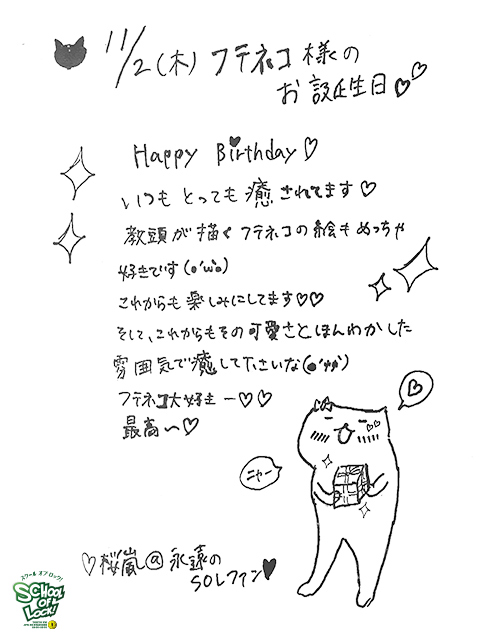 11/2(木) フテネコ様の
お誕生日♡♡
Happy Birthday♡
いつも とっても 癒されてます♡
教頭が描くフテネコの絵もめっちゃ
好きです(o'ω'o)
これからも楽しみにしてます♡♡
そして、これからもその可愛さとほんわかした
雰囲気で癒して下さいな(●'艸')
フテネコ大好きー♡♡
最高〜♡
♡
ニャー
♡桜嵐@永遠の
SOLファン♥
スクール オブ ロック!
SCHOOL
OF
LOCK!